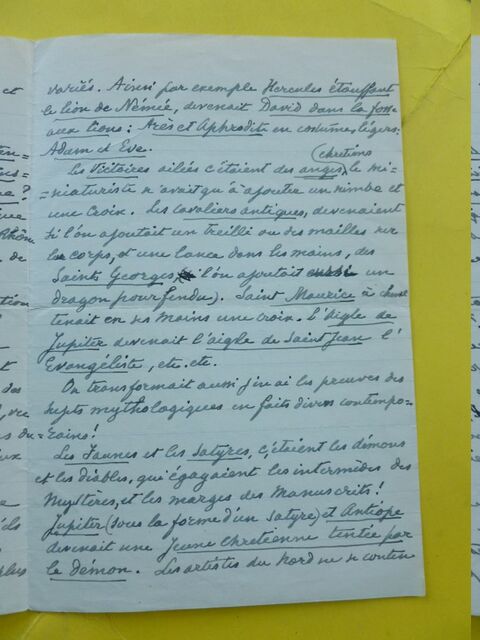 variés. Ainsi par exemple Hercules étouffant
le lion de Némée, devenait David dans la fosse
aux lions: Arès et Aphrodite en costumes légers:
Adam et Eve.
(chrétiens
Les Victoires ailées c'étaient des anges, le mi-
=niaturiste n'avait qu'à ajouter un nimbe et
une croix. Les cavaliers antiques, devenaient
si l'on ajoutait un treilli ou des mailles sur
le corps, et une lance dans les mains, des
Saints Georges (si l'on ajoutait un
dragon pourfendu). Saint Maurice à cheval
tenait en ses mains une croix. l'Aigle de
Jupiter devenait l'aigle de Saint Jean l'
Evangéliste, etc. etc.
On transformait aussi j'en ai les preuves des
sujets mythologiques en faits divers contempo-
=rains!
Les Faunes et les Satyres, c'étaient les démons
et les diables, qui égayaient les intermèdes des
Mystères, et les marges des Manuscrits!
Jupiter (sous la forme d'un Satyre) et Antiope
devenait une Jeune chrétienne tentée par
le démon. Les artistes du Nord ne se conten